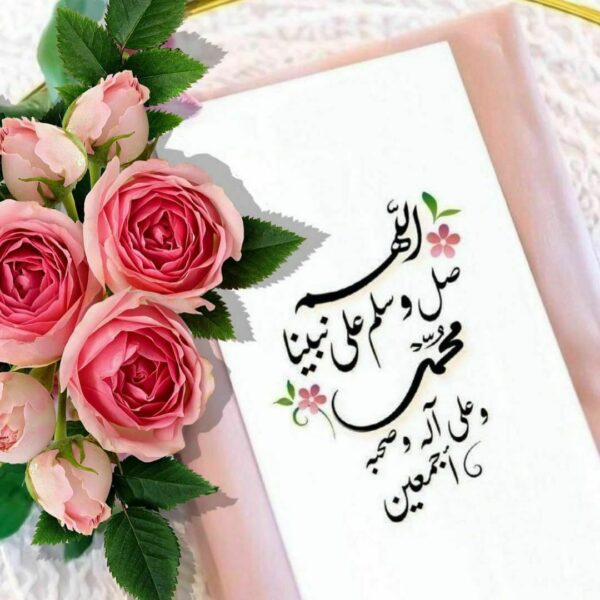 اللّهم
صل وسلم على نبينا
محمّد
وعلى آله وصحبه
أجمعين